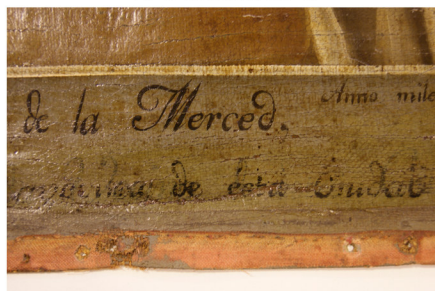 de la Merced.
Anno mile
de esta Ciudad